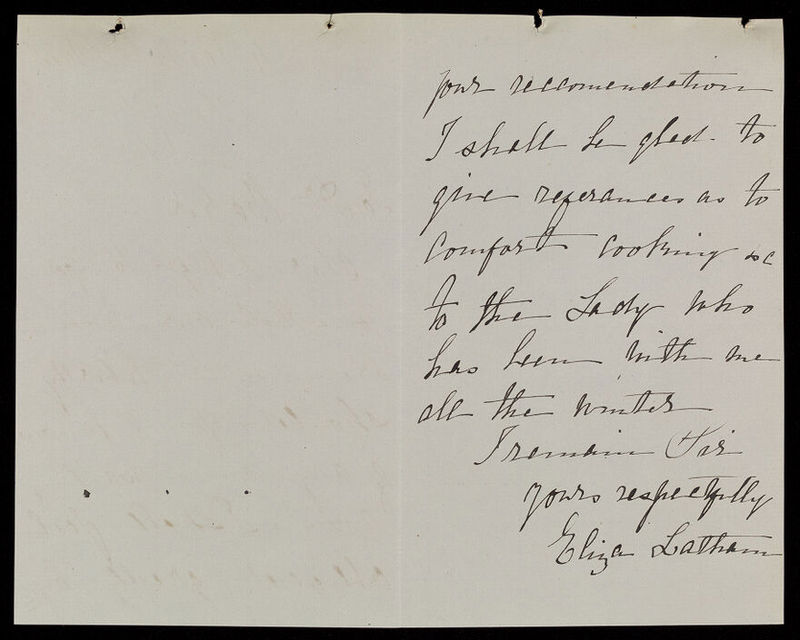 your reccomendation
I shall be glad to
give referances as to
comfort cooking &c
to the Lady who
has been with me
all the winter
I remain Sir
yours respectfully
Eliza Latham